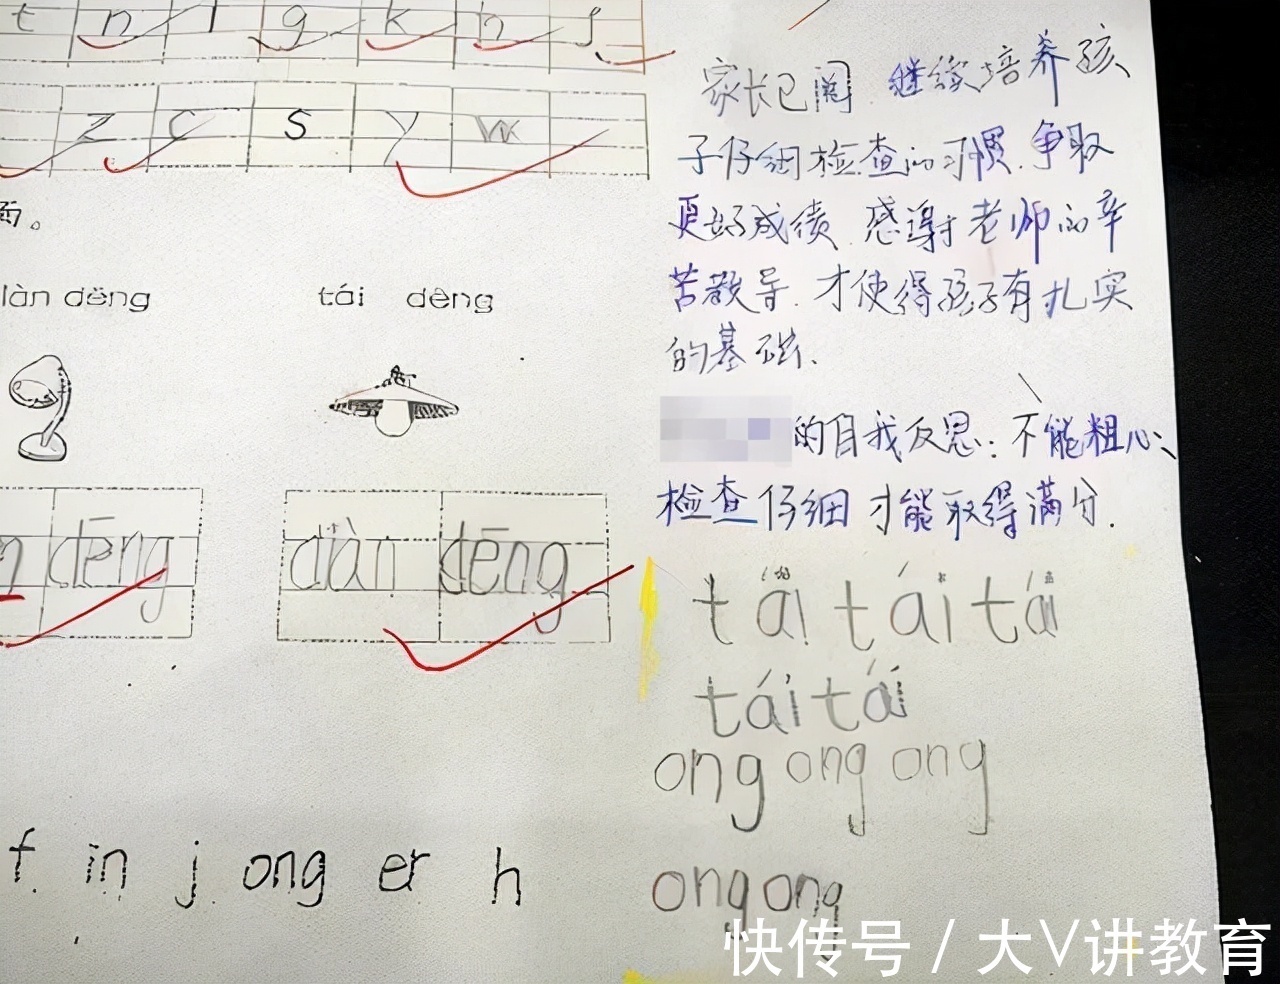 t n l g k h j
z c s y w
面。
làn dēng
tái dēng
n dēng
diàn dēng
f in j ong er h
家长已阅 继续培养孩
子仔细检查的习惯.争取
更好成绩.感谢老师的辛
苦教导.才使得孩子有扎实
的基础.
的自我反思:不能粗心、
检查仔细才能取得满分.
tái tái tái
tái tái
ong ong ong
ong ong
快传号 / 大V讲教育